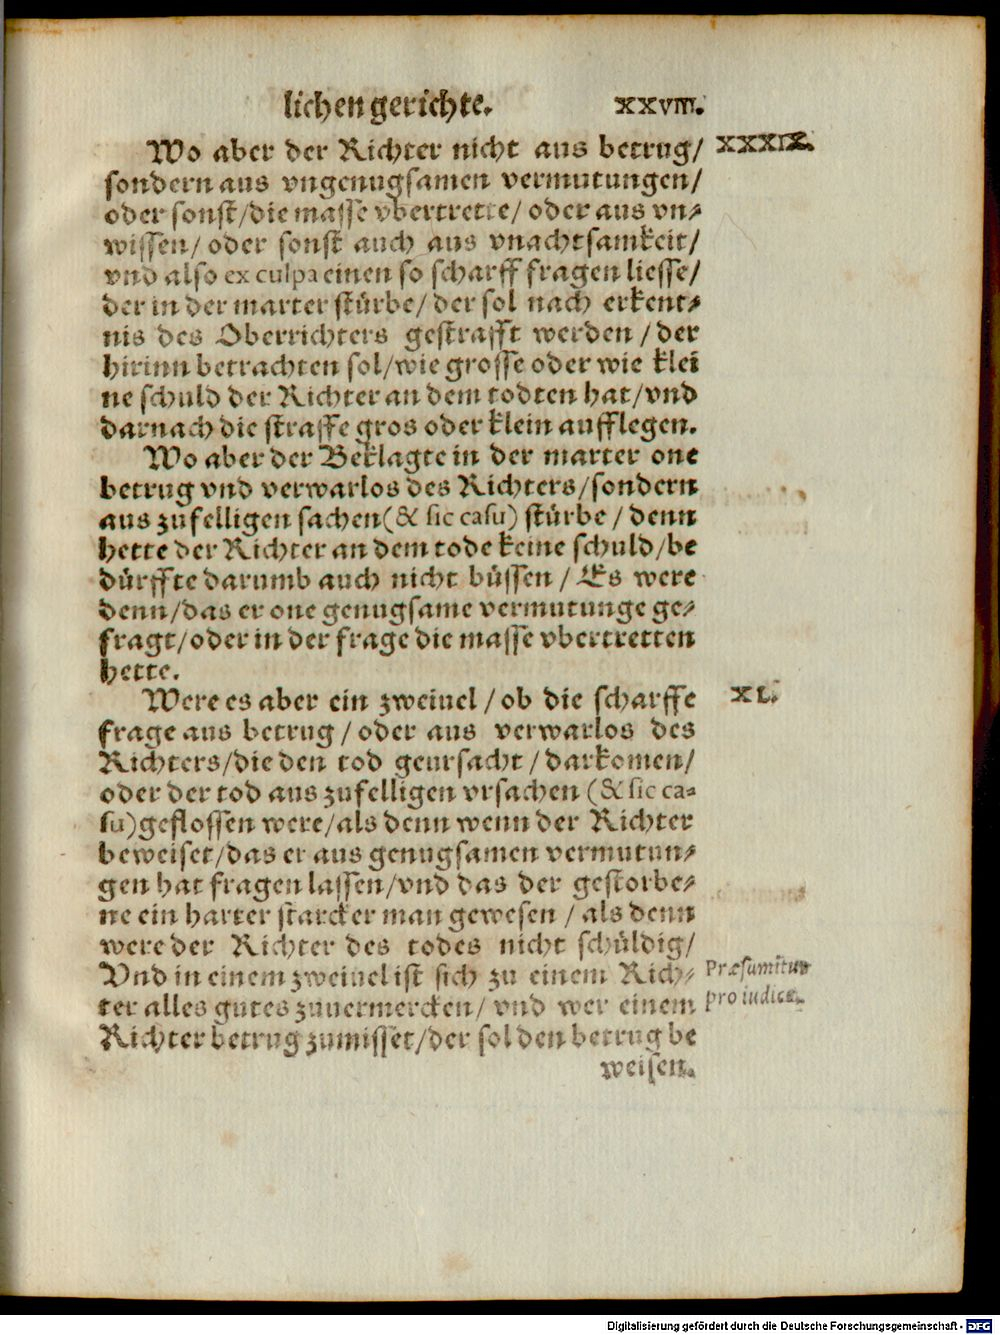 lichen gerichte. XXVIII.
Wo aber der Richter nicht aus betrug/ XXXIX.
sondern aus vngenugsamen vermutungen/
oder sonst/die masse vbertrette/ oder aus vn⸗
wissen/ oder sonst auch aus vnachtsamkeit/
vnd also ex culpa einen so scharff fragen liesse/
der in der marter stürbe/ der sol nach erkent⸗
nis des Oberrichters gestrafft werden / der
hirinn betrachten sol/wie grosse oder wie klei
ne schuld der Richter an dem todten hat/vnd
darnach die straffe gros oder klein aufflegen.
Wo aber der Beklagte in der marter one
betrug vnd verwarlos des Richters/sondern
aus zufelligen sachen(& sic casu) stürbe / denn
hette der Richter an dem tode keine schuld/be
dürffte darumb auch nicht büssen / Es were
denn/das er one genugsame vermutunge ge⸗
fragt/oder in der frage die masse vbertretten
hette.
Were es aber ein zweiuel / ob die scharffe XL.
frage aus betrug / oder aus verwarlos des
Richters/die den tod geursacht / darkomen/
oder der tod aus zufelligen vrsachen (& sic ca-
su)geflossen were/als denn wenn der Richter
beweiset/das er aus genugsamen vermutun⸗
gen hat fragen lassen/vnd das der gestorbe⸗
ne ein harter starcker man gewesen / als denn
were der Richter des todes nicht schüldig/
Vnd in einem zweiuel ist sich zu einem Rich⸗ Præsumitur
ter alles gutes zuuermercken/ vnd wer einem pro iudice.
Richter betrug zumisset/der sol den betrug be
weisen.
Digitalisierung gefördert durch die Deutsche Forschungsgemeinschaft - DFG